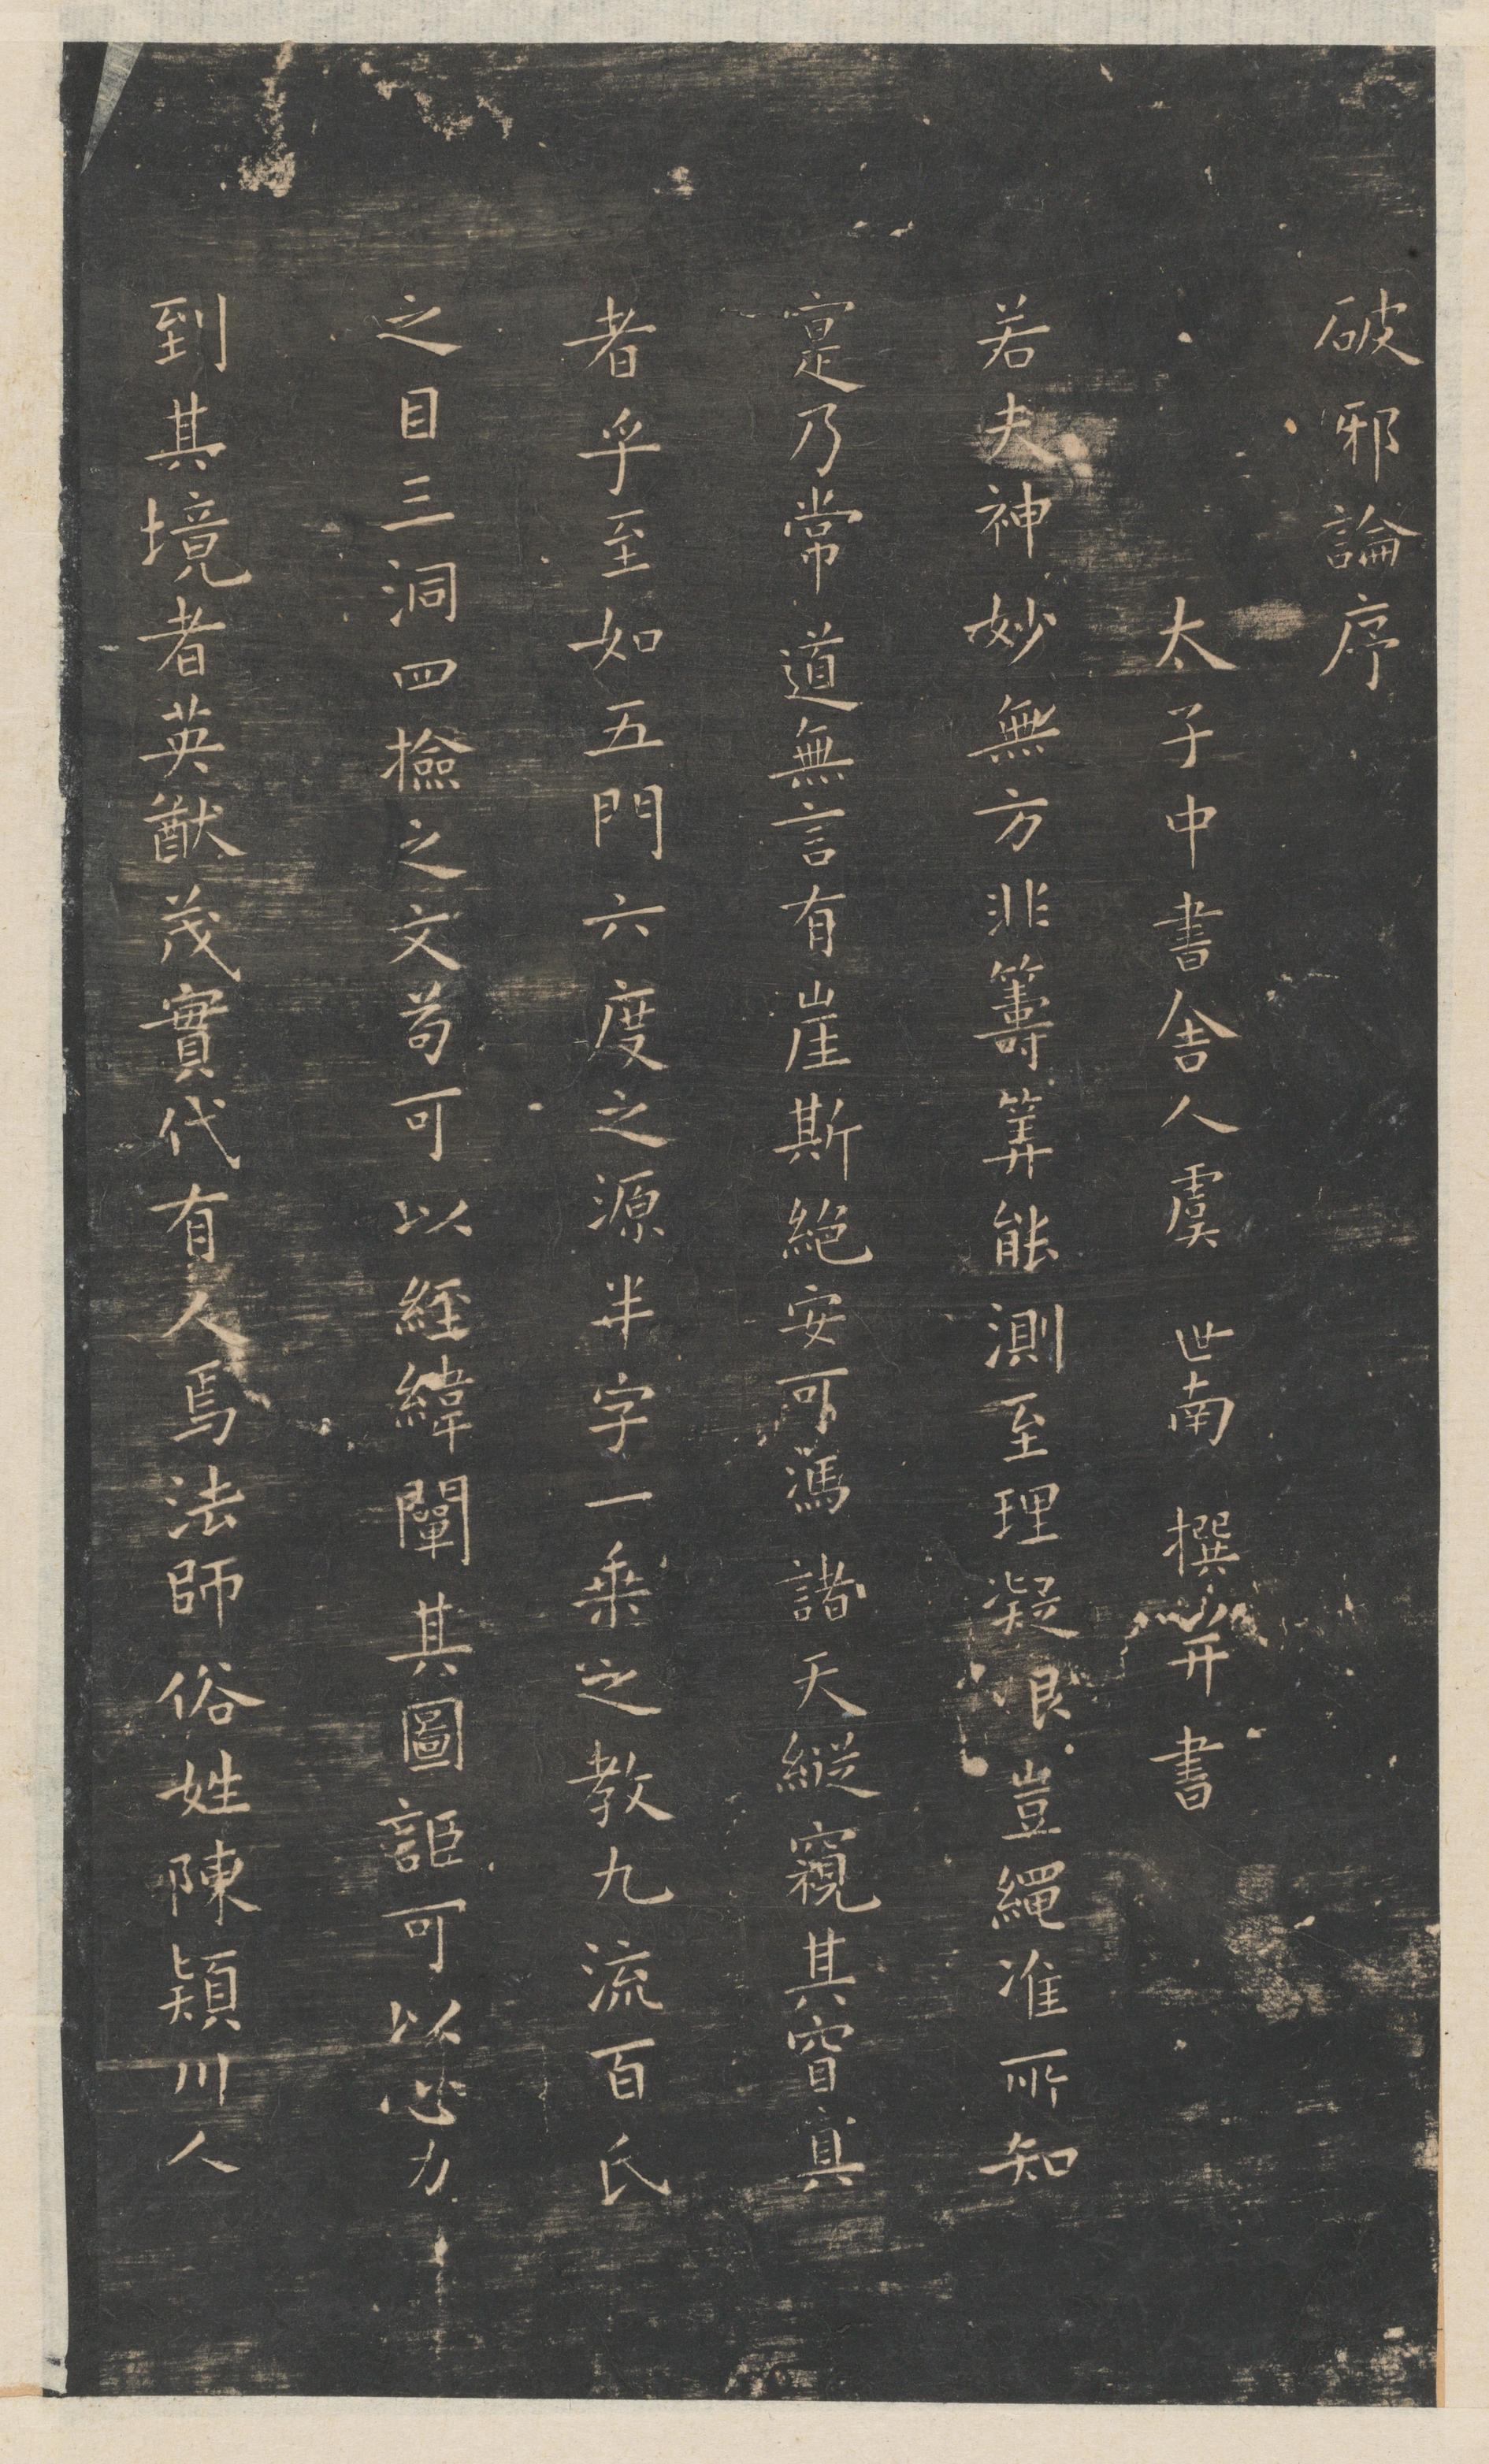 破邪論序
太子中書舍人虞世南撰并書
若夫神妙無方非籌筭能測至理凝邈豈繩准所知
寔乃常道無言有崖斯絕安可馮諸天縱窺其窅冥
者乎至如五門六度之源半字一乗之教九流百氏
之目三洞四撿之文苟可以經緯闡其圖詎可以心力
到其境者英猷茂實代有人焉法師俗姓陳潁川人